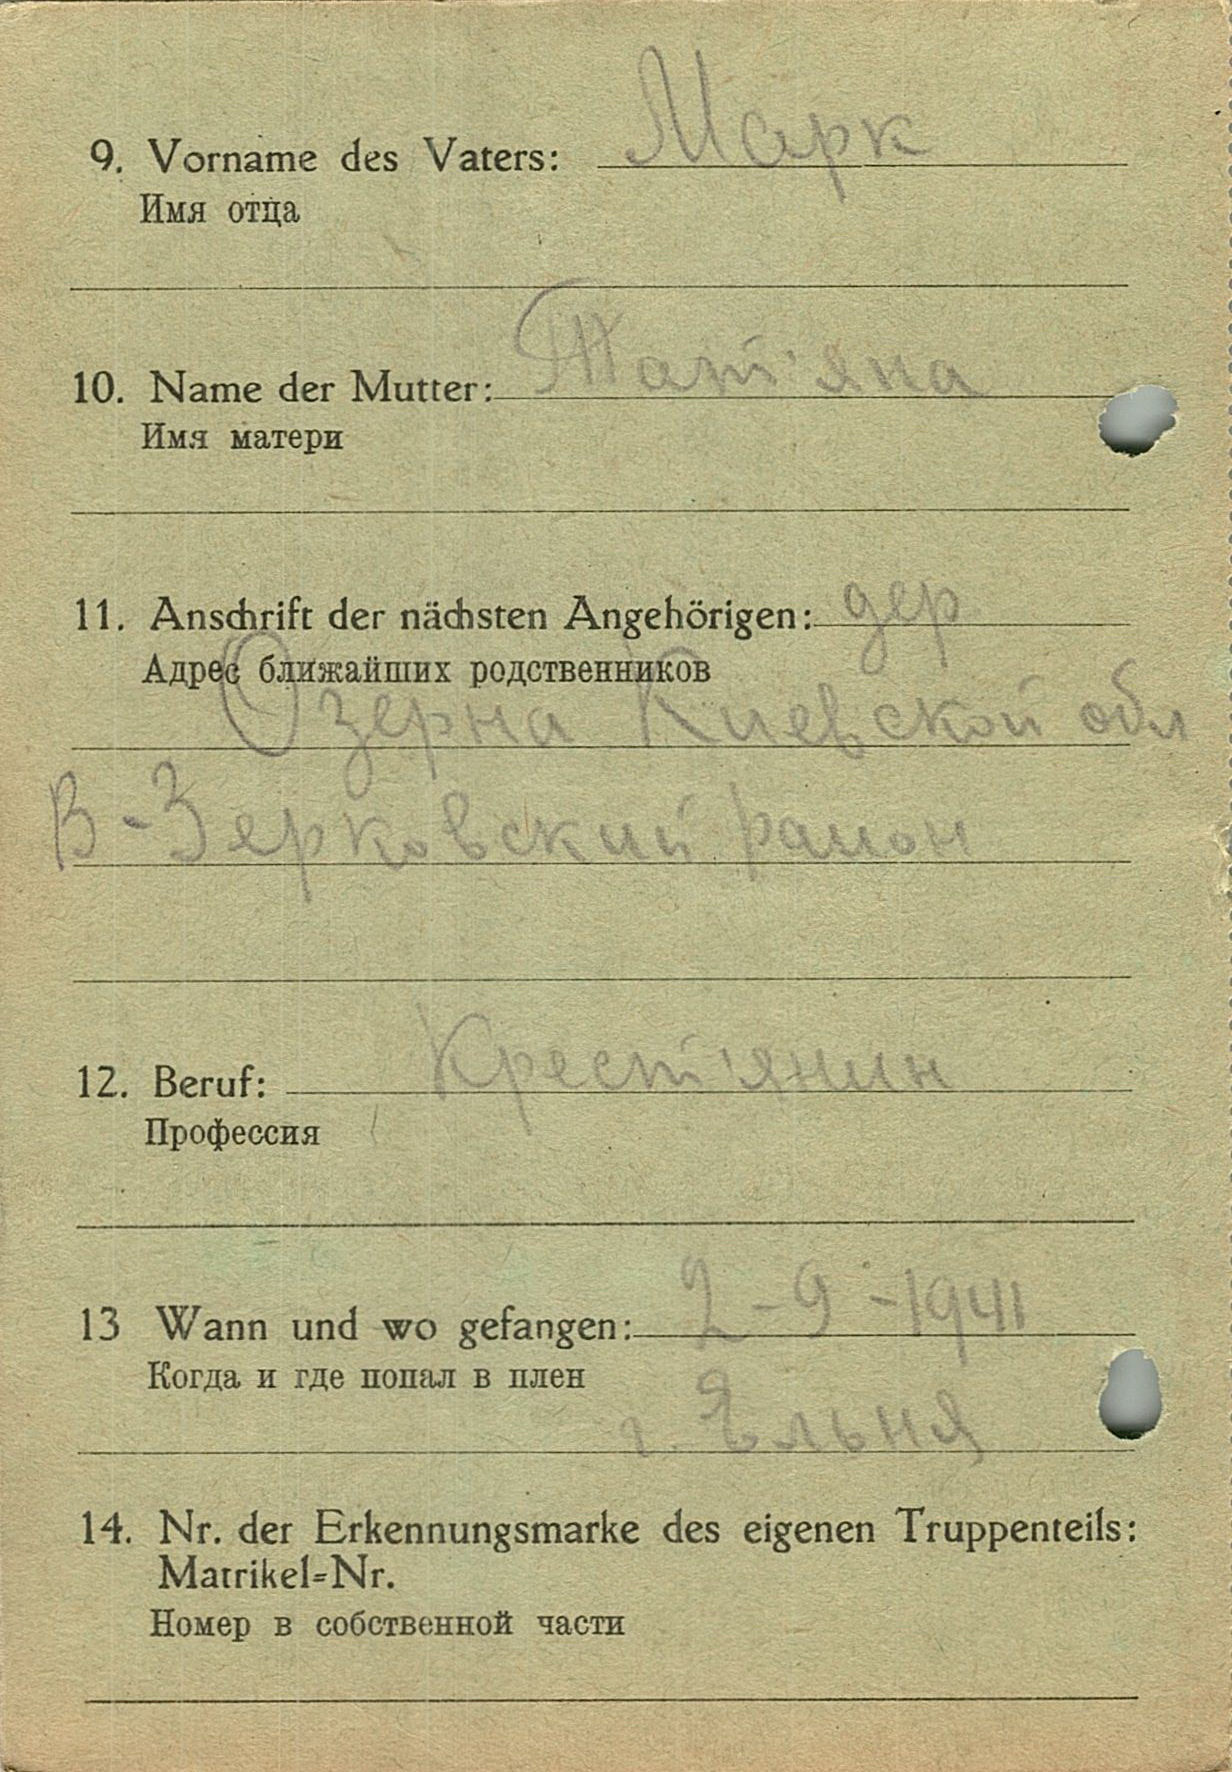 9. Vorname des Vaters: Марк
Имя отца
10. Name der Mutter: Тат'яна
Имя матери
11. Anschrift der nächsten Angehörigen: дер
Адрес ближайших родственников
Озерна Киевской обл
В-Зерковский район
12. Beruf: Крест'янин
Профессия
13 Wann und wo gefangen: 2-9-1941
Когда и где попал в плен
г. Ельня
14. Nr. der Erkennungsmarke des eigenen Truppenteils:
Matrikel=Nr.
Номер в собственной части